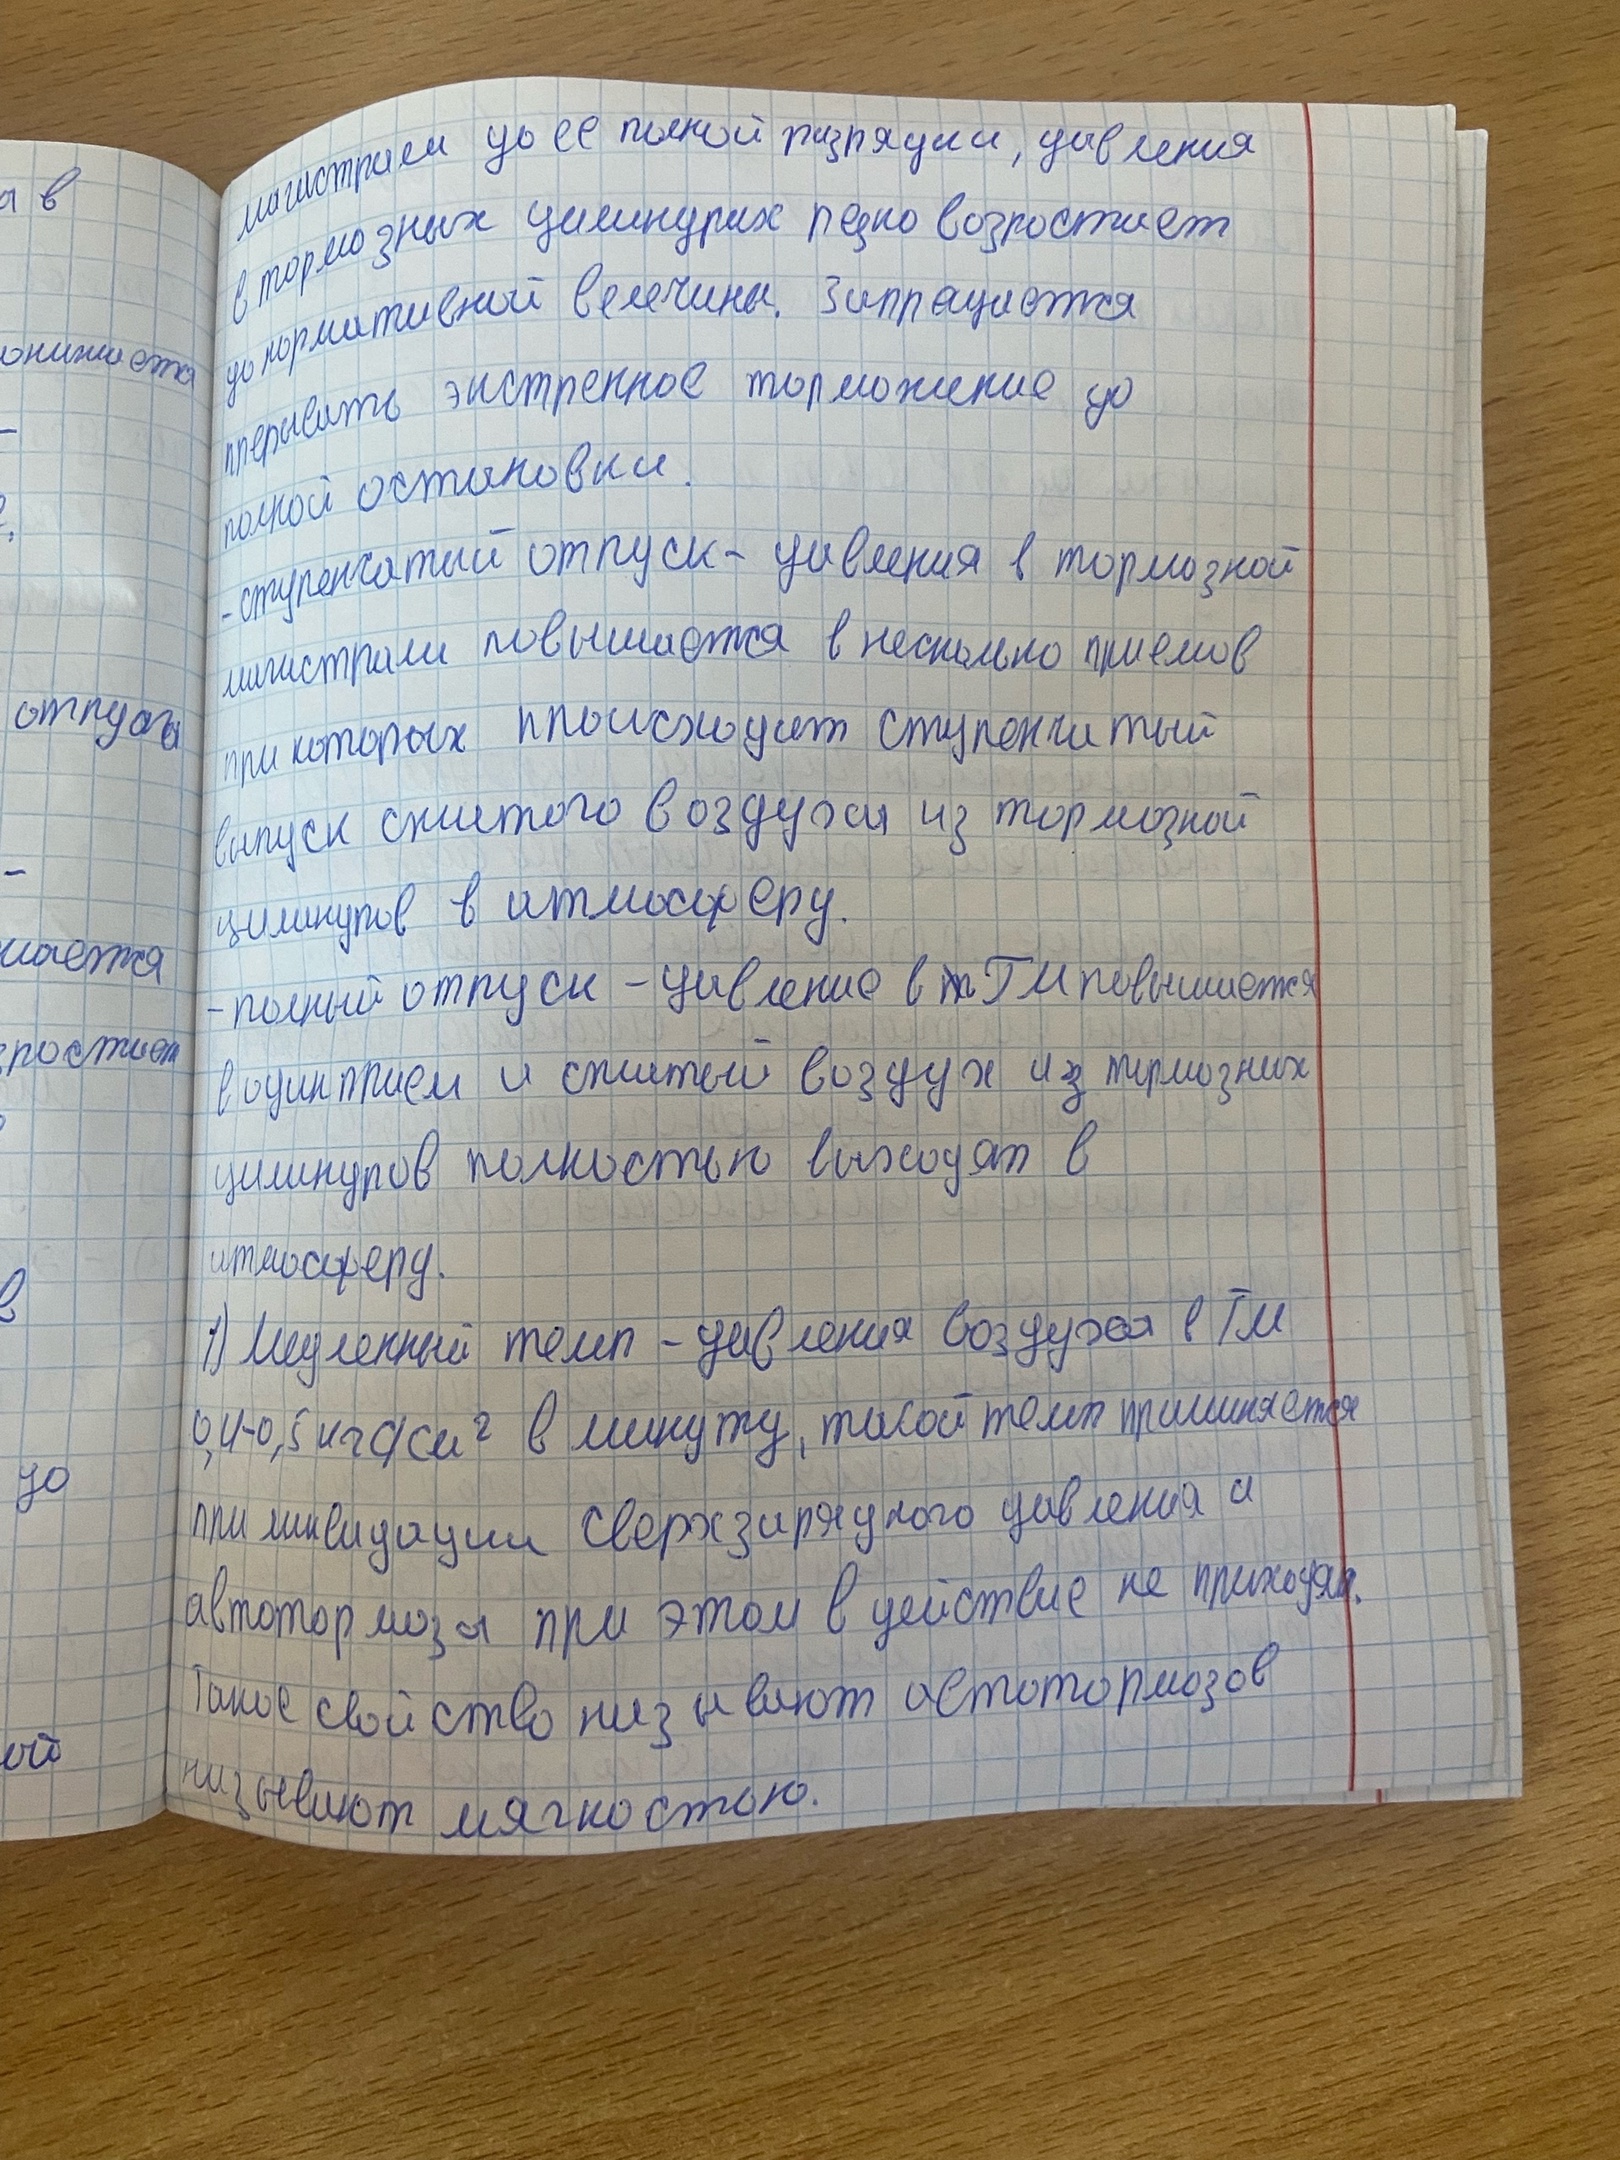 а в
онижается
отпуска
шается
зростает
в
до
ой
магистрали до ее полной разрядки, давления
в тормозных цилиндрах резко возростает
до нормативной велечины. Запрещается
прерывать экстренное торможение до
полной остановки.
-ступенчатый отпуск- давления в тормозной
магистрали повышается в несколько приемов
при которых происходит ступенчатый
выпуск сжатого воздуха из тормозной
цилиндров в атмосферу.
-полный отпуск - давление в ТМ повышается
в один прием и сжатый воздух из тормозных
цилиндров полностью выходят в
атмосферу.
1) Медленный темп - давления воздуха в ТМ
0,4-0,5 кгс/см² в минуту, такой темп применяется
при ликвидации сверхзарядного давления и
автотормоза при этом в действие не приходят.
Такое свойство называют автотормозов
называют мягкостью.